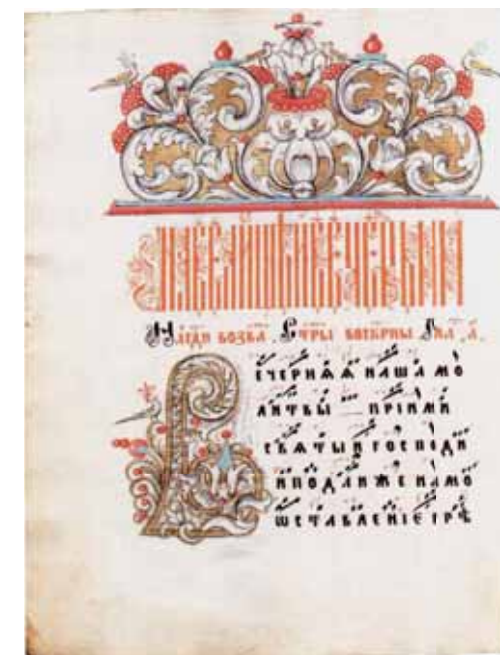 На гди возва . Стры воскрны Гла . а .
Вечернѧѧ наша мо
литвы прїими
свѧтыи господи
и подаиже намо
ѡставленїе грѣ